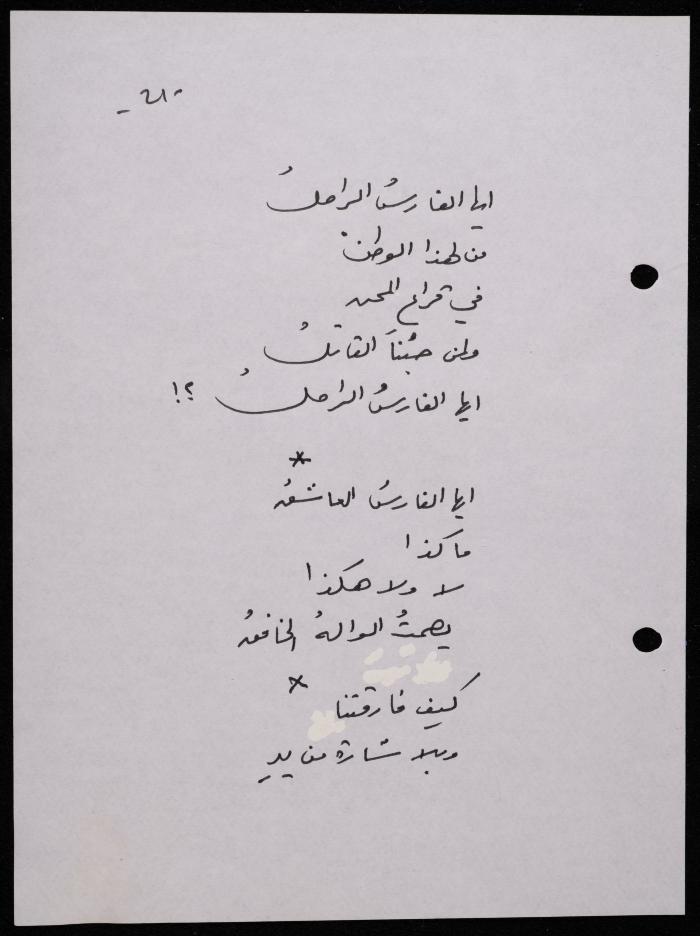 ايها الفارسُ الراحلُ
من لهذا الوطن
في قراع المحن
ولمن حبُّنا القاتلُ
ايها الفارسُ الراحلُ ؟!
*
ايها الفارسُ العاشقُ
ما كذا
لا ولا هكذا
يصمتُ الوالهُ الخافقُ
*
كيف فارقتنا
وبلا شارة من يدٍ